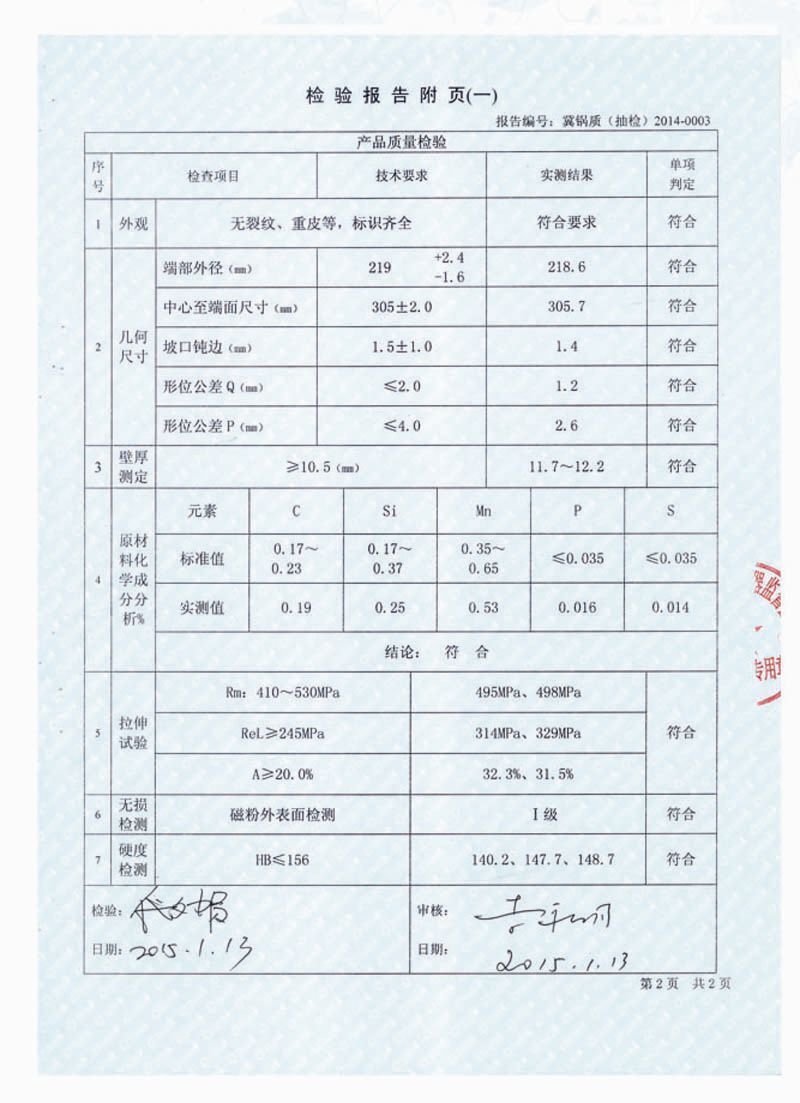 检验报告附页(一)
报告编号：冀锅质（抽检）2014-0003
产品质量检验
序号 检查项目 技术要求 实测结果 单项判定
1 外观 无裂纹、重皮等，标识齐全 符合要求 符合
2 几何尺寸 端部外径(mm) 219 +2.4 -1.6 218.6 符合
中心至端面尺寸(mm) 305±2.0 305.7 符合
坡口钝边(mm) 1.5±1.0 1.4 符合
形位公差Q(mm) ≤2.0 1.2 符合
形位公差P(mm) ≤4.0 2.6 符合
3 壁厚测定 ≥10.5(mm) 11.7～12.2 符合
4 原材料化学成分分析% 元素 C Si Mn P S
标准值 0.17～0.23 0.17～0.37 0.35～0.65 ≤0.035 ≤0.035
实测值 0.19 0.25 0.53 0.016 0.014
结论： 符 合
5 拉伸试验 Rm：410～530MPa 495MPa、498MPa 符合
ReL≥245MPa 314MPa、329MPa
A≥20.0% 32.3%、31.5%
6 无损检测 磁粉外表面检测 I级 符合
7 硬度检测 HB≤156 140.2、147.7、148.7 符合
检验： 审核：
日期：2015.1.13 日期：2015.1.13
第2页 共2页
专用章